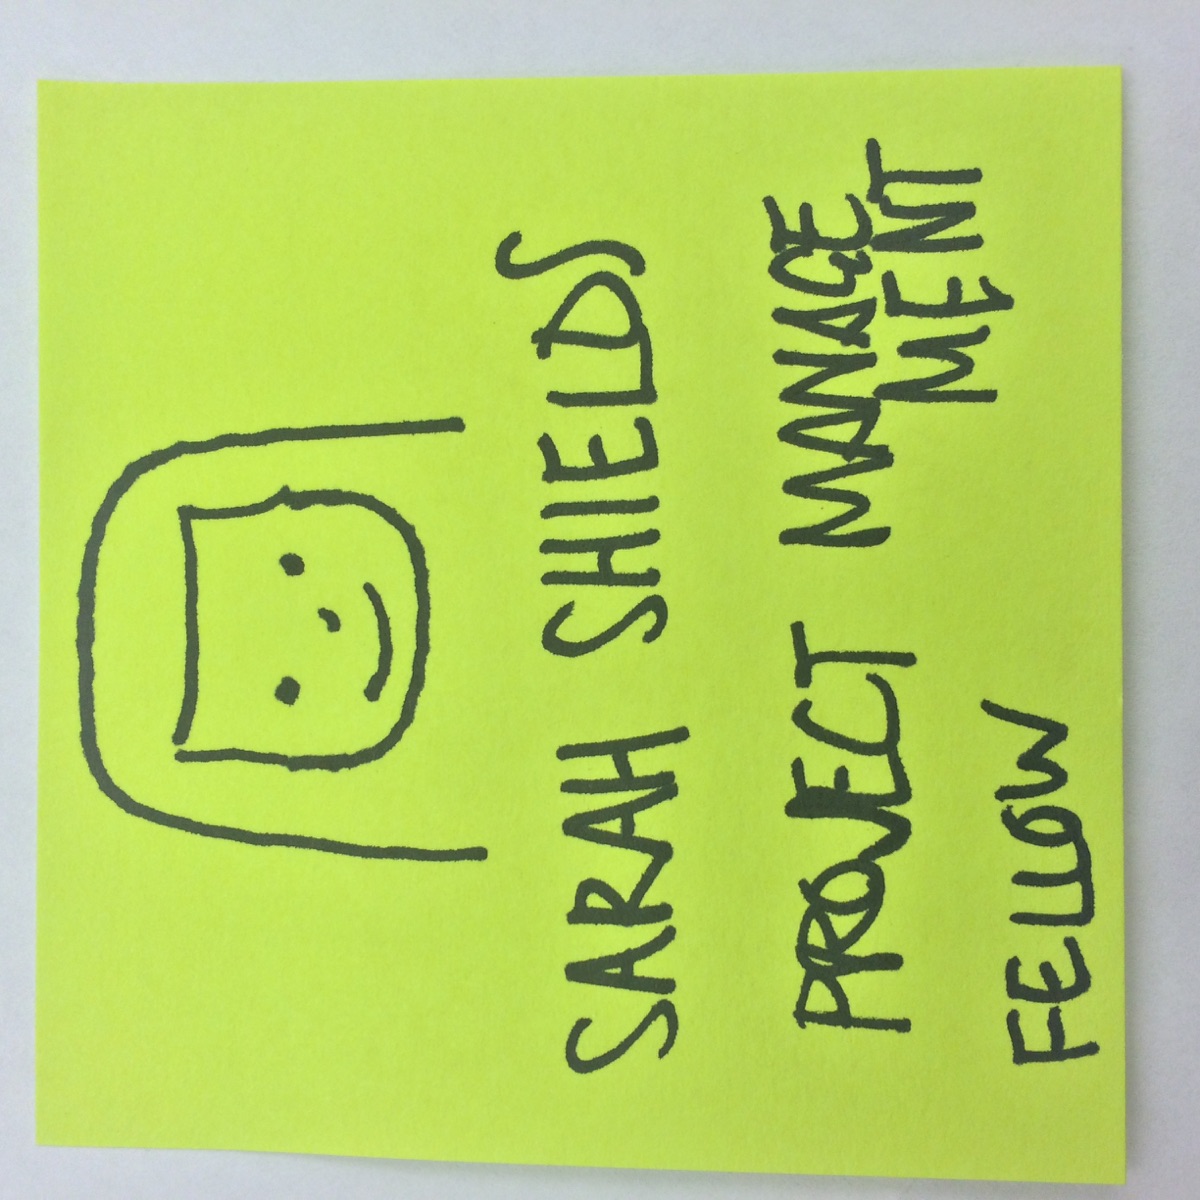 SARAH SHIELDS
PROJECT MANAGE
MENT
FELLOW